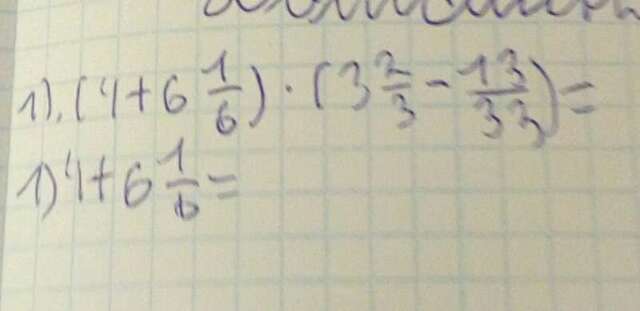 1). (4+6 1/6) · (3 2/3 - 13/33) =
1) 4+6 1/6 =